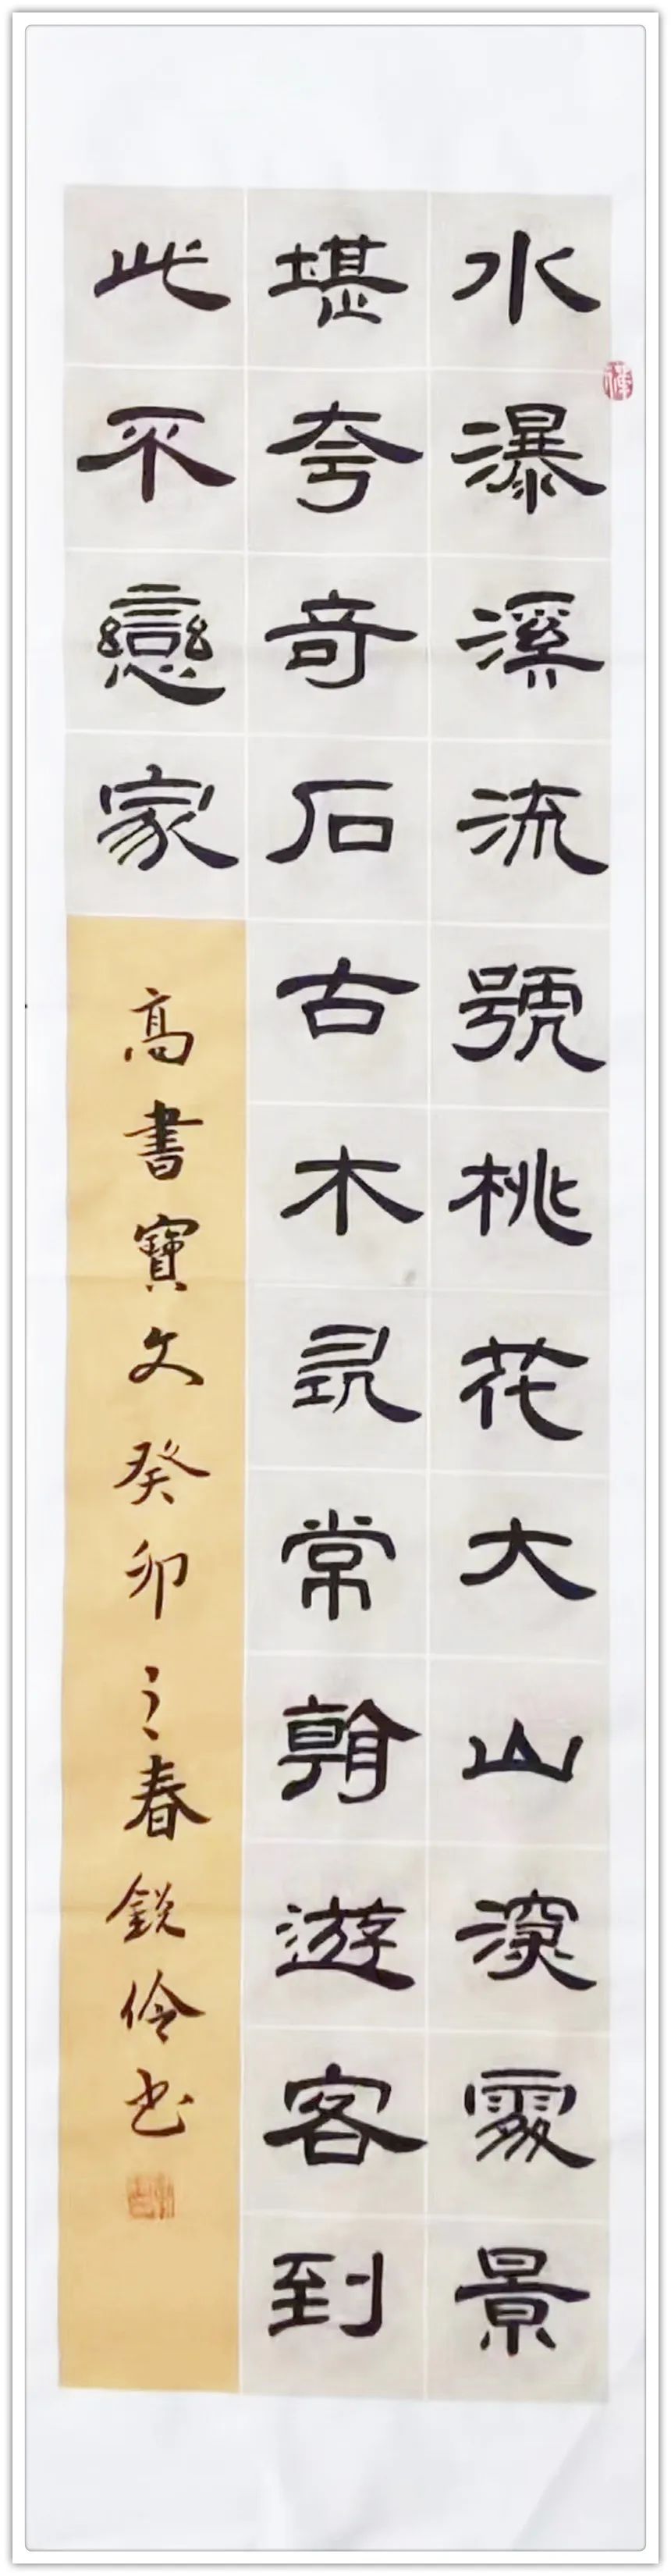 水瀑溪流號桃花大山深處景
堪夸奇石古木常朝遊客到
此不戀家
高書寶文癸卯之春銳伶书